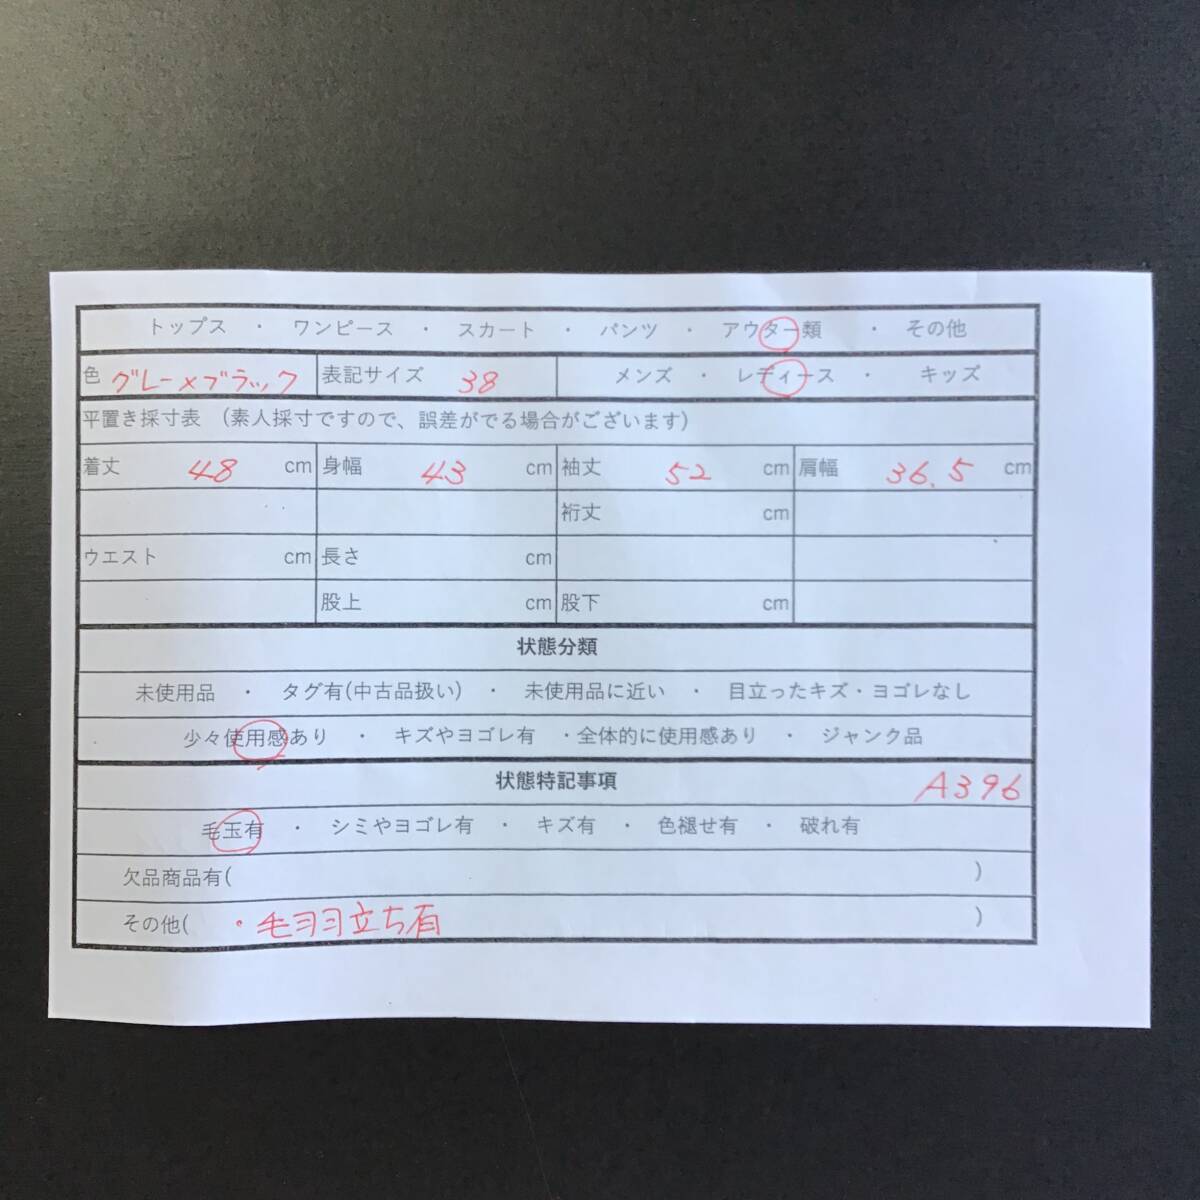 トップス ・ ワンピース ・ スカート ・ パンツ ・ アウター類 ・ その他
色 グレー×ブラック 表記サイズ 38 メンズ ・ レディース ・ キッズ
平置き採寸表 (素人採寸ですので、誤差がでる場合がございます)
着丈 48 cm 身幅 43 cm 袖丈 52 cm 肩幅 36.5 cm
裄丈 cm
ウエスト cm 長さ cm
股上 cm 股下 cm
状態分類
未使用品 ・ タグ有(中古品扱い) ・ 未使用品に近い ・ 目立ったキズ・ヨゴレなし
少々使用感あり ・ キズやヨゴレ有 ・全体的に使用感あり ・ ジャンク品
状態特記事項 A396
毛玉有 ・ シミやヨゴレ有 ・ キズ有 ・ 色褪せ有 ・ 破れ有
欠品商品有( )
その他( ・毛羽立ち有 )